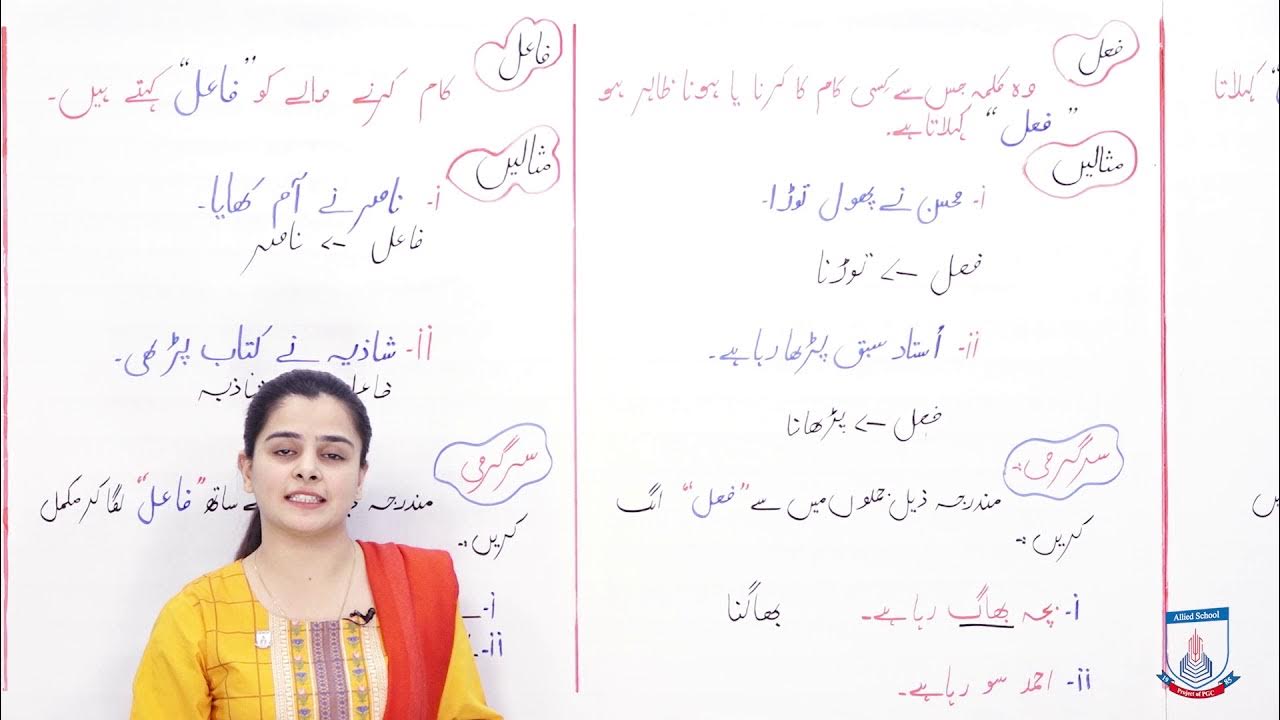 " کہلاتا
فعل
وہ کلمہ جس سے کِسی کام کا کرنا یا ہونا ظاہر ہو
"فعل" کہلاتا ہے۔
مثالیں
i- محسن نے پھول توڑا۔
فعل -> توڑنا
ii- اُستاد سبق پڑھا رہا ہے۔
فعل -> پڑھانا
سرگرمی:۔
مندرجہ ذیل جملوں میں سے "فعل" الگ
کریں:۔
i- بچہ بھاگ رہا ہے۔ بھاگنا
ii- احمد سو رہا ہے۔
فاعل
کام کرنے والے کو "فاعل" کہتے ہیں۔
مثالیں
i- ناصر نے آم کھایا۔
فاعل -> ناصر
ii- شاذیہ نے کتاب پڑھی۔
فاعل شاذیہ
سرگرمی
مندرجہ ساتھ "فاعل" لگا کر مکمل
کریں:۔
i-
ii-
Allied School
19 85
Project of PGC